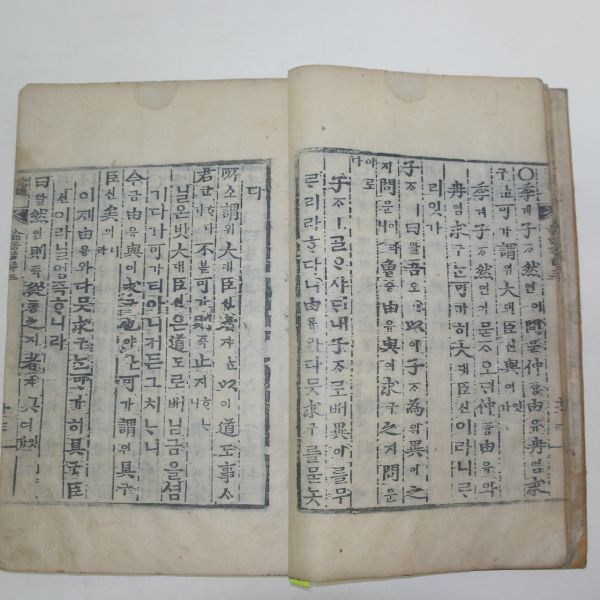 ○季계子ᄌᆞ然연이問문仲듕由유冉염求
구ᄂᆞᆫ可가謂위大대臣신與여ㅣ잇가
季계子ᄌᆞ然연이묻ᄌᆞ오ᄃᆡ仲듕由유와
冉염求구ᄂᆞᆫ可가히大대臣신이라니ᄅᆞ
리잇가
子ᄌᆞㅣ曰왈吾오ㅣ以이子ᄌᆞ為위異이之
지問문이라니曾증由유與여求구之지問문
이로다
子ᄌᆞㅣᄀᆞᆯᄋᆞ샤ᄃᆡ내子ᄌᆞ로ᄡᅥ異이를무
르리라ᄒᆞ다니由유와다ᄆᆞᆺ求구를묻놋
다
所소謂위大대臣신者쟈ᄂᆞᆫ以이道도事ᄉᆞ
君군ᄒᆞ다가不블可가則즉止지ᄒᆞᄂᆞ니
닐온밧大대臣신은道도로ᄡᅥ님금을섬
기다가可가티아니커든그치ᄂᆞ니
今금由유與여求구也야ᄂᆞᆫ可가謂위具구
臣신矣의니라
이제由유와다ᄆᆞᆺ求구ᄂᆞᆫ可가히具구臣
신이라닐엄즉ᄒᆞ니라
曰왈然연則즉從죵之지者쟈ㅣ與여ㅣ잇가